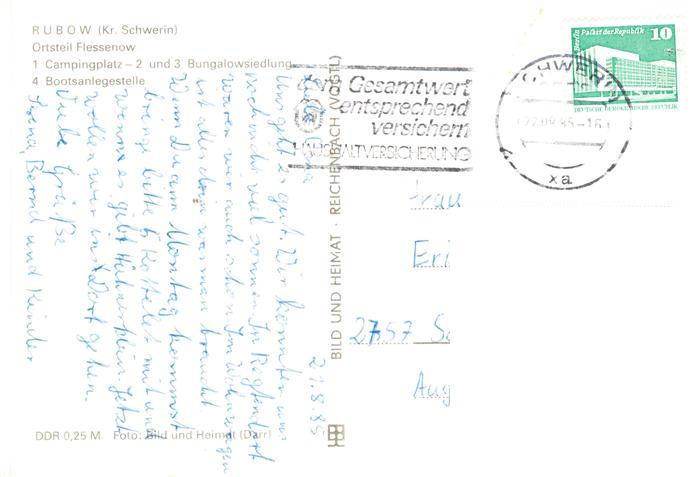 RUBOW (Kr. Schwerin)
Ortsteil Flessenow
1 Campingplatz – 2 und 3 Bungalowsiedlung
4 Bootsanlegestelle
21.8.85
Liebe Oma
Uns geht es gut. Wir konnten uns
noch nicht viel sonnen. In
waren wir auch schon. Im Wohnwagen
ist alles drin was man braucht
Wenn du am Montag kommst
bringe bitte 6 Kotelet mit und
wenn es gibt Hühnerklein. Jetzt
wollen wir ins Dorf gehen.
Viele Grüße
Bernd und Kinder
BILD UND HEIMAT · REICHENBACH (VOGTL)
DDR 0,25 M Foto: Bild und Heimat (Darr)
Gesamtwert
entsprechend
versichern
HAUSHALTVERSICHERUNG
SCHWERIN
22.08.85-16
xa
Berlin Palast der Republik
10
DEUTSCHE DEMOKRATISCHE REPUBLIK
Frau
Eri
2757 Sc
Aug